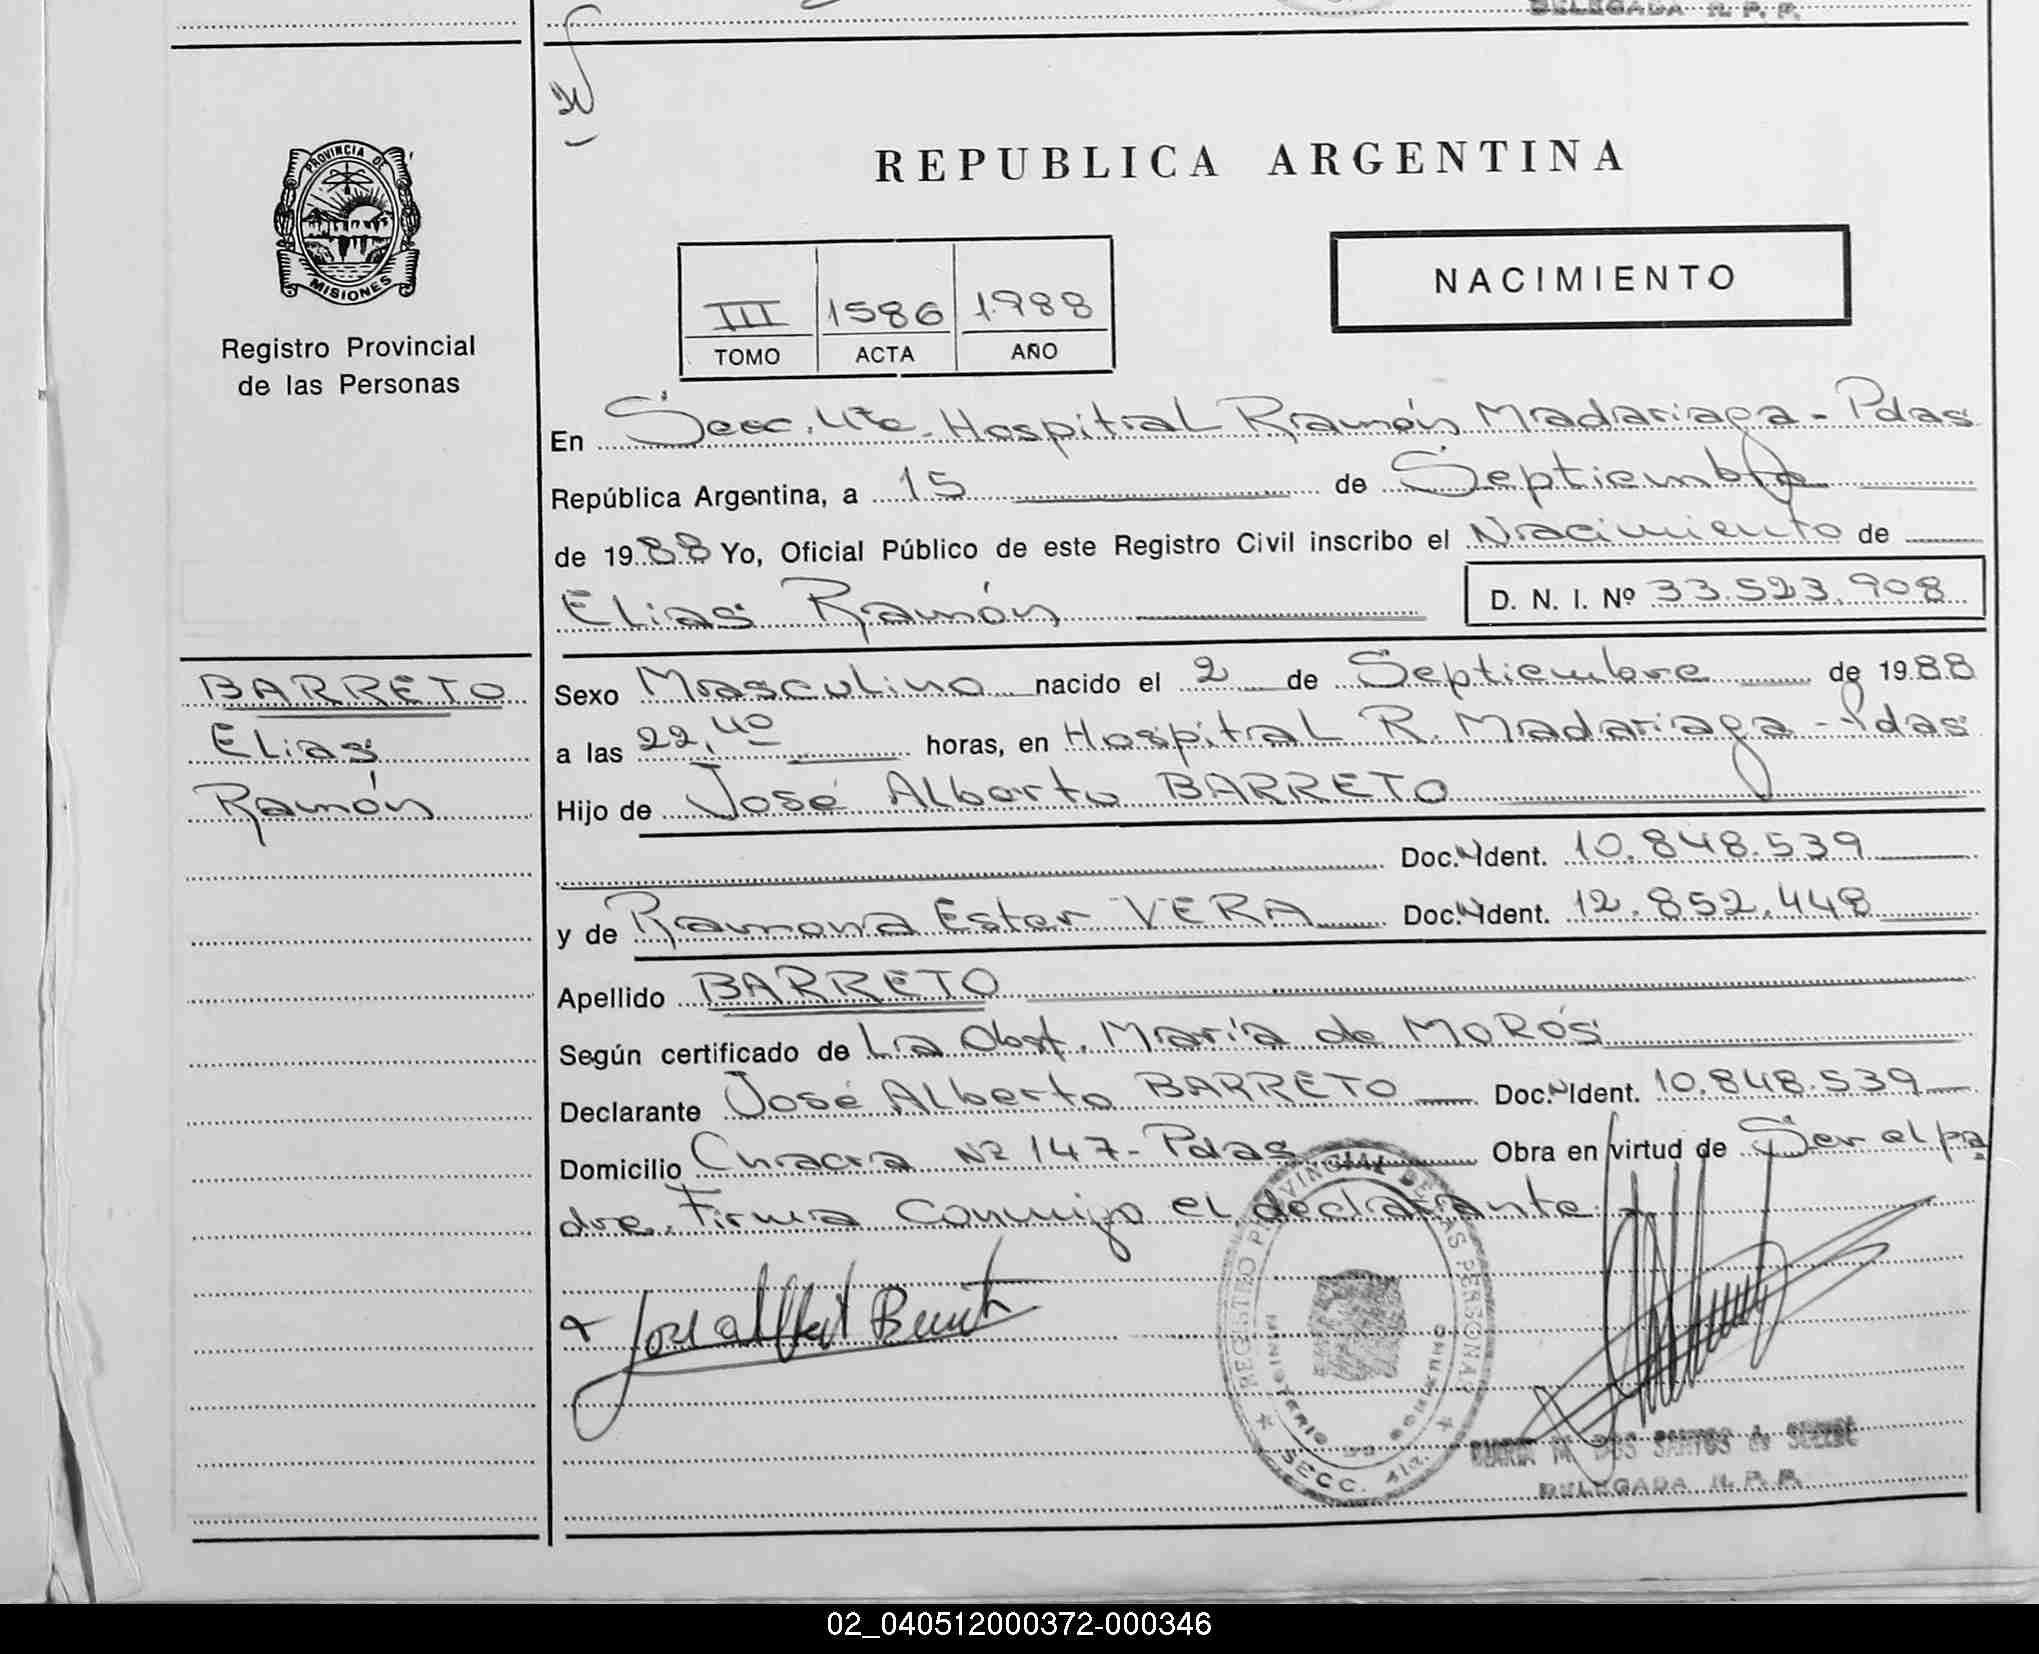 DELEGADA R. P. P.
PROVINCIA DE
MISIONES
Registro Provincial
de las Personas
REPUBLICA ARGENTINA
NACIMIENTO
III 1586 1.988
TOMO ACTA AÑO
En Secc. 4ta. Hospital Ramón Madariaga - Pdas
República Argentina, a 15 de Septiembre
de 1988 Yo, Oficial Público de este Registro Civil inscribo el Nacimiento de
Elias Ramón D. N. I. Nº 33.523.908
BARRETO
Elias
Ramón
Sexo Masculino nacido el 2 de Septiembre de 1988
a las 22,40 horas, en Hospital R. Madariaga - Pdas
Hijo de José Alberto BARRETO
Doc. N Ident. 10.848.539
y de Ramona Ester VERA Doc. N Ident. 12.852.448
Apellido BARRETO
Según certificado de La Obst. María de MoRós
Declarante José Alberto BARRETO Doc. N Ident. 10.848.539
Domicilio Chacra Nº 147 - Pdas Obra en virtud de Ser el pa
dre. Firma conmigo el declarante
REGISTRO PROVINCIAL DE LAS PERSONAS
MINISTERIO DE GOBIERNO
SECC. 4ta.
MARIA M. DOS SANTOS de
DELEGADA R. P. P.
02_040512000372-000346